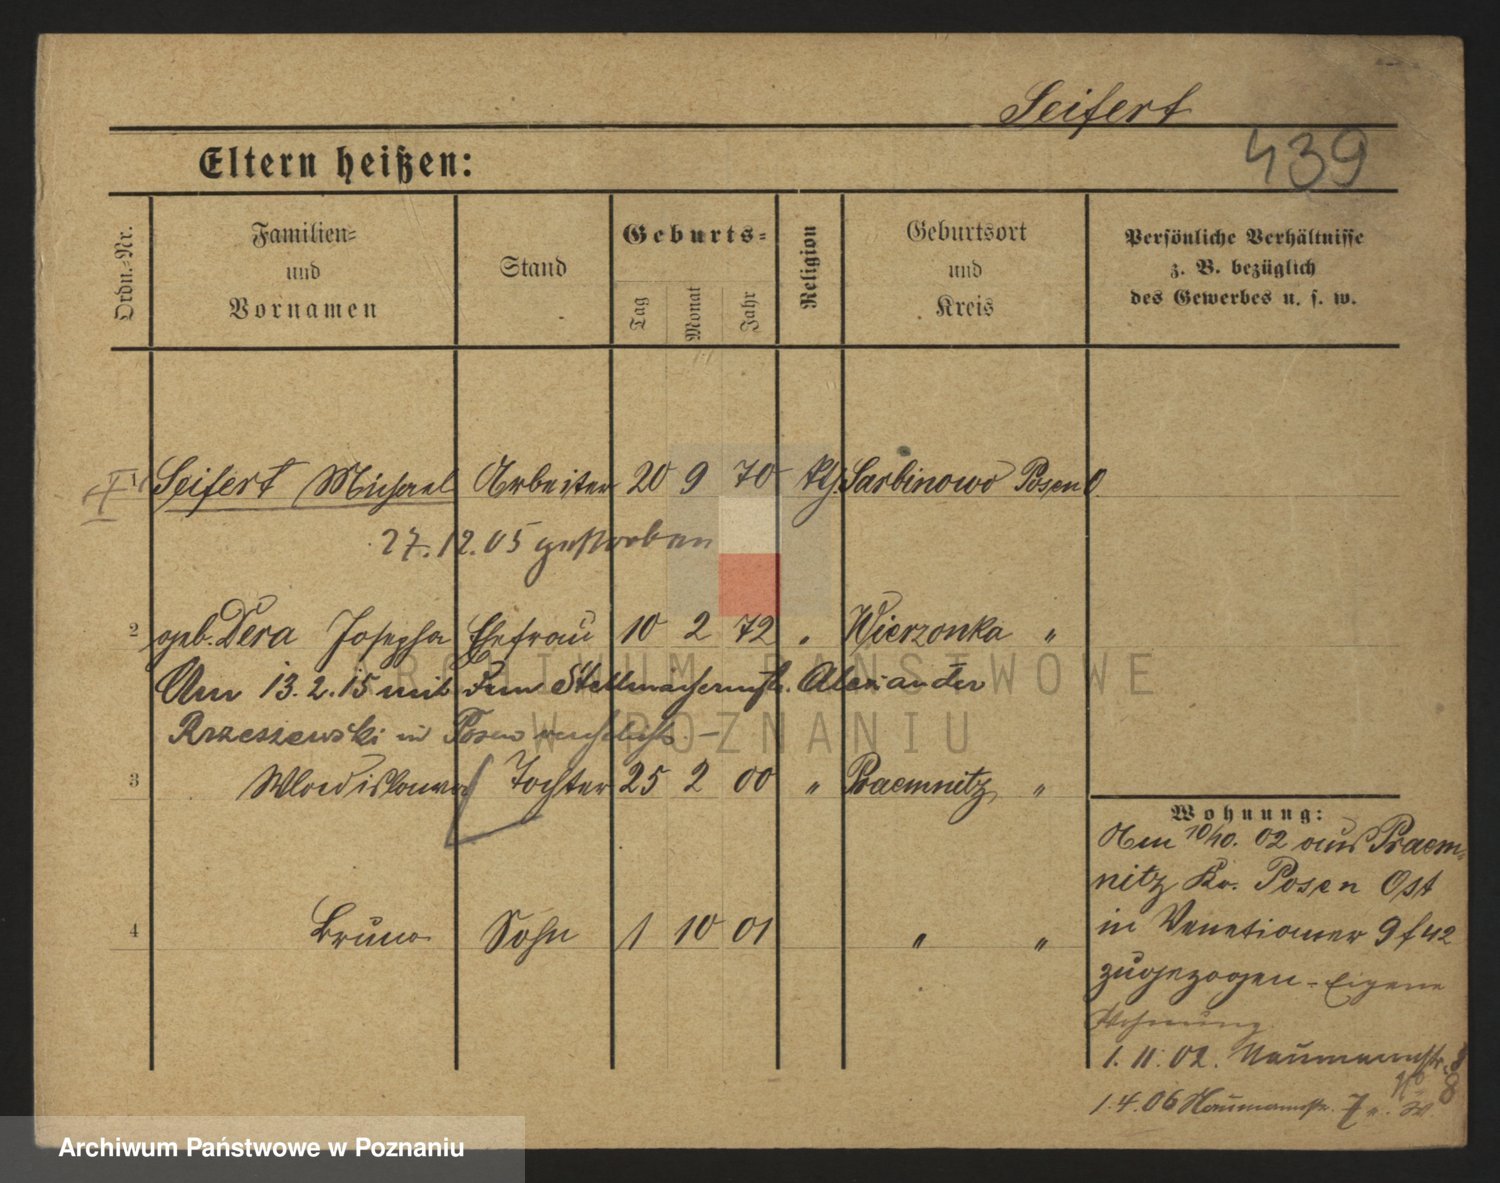 Seifert
439
Eltern heißen:
Ordn.-Nr.
Familien-
und
Vornamen
Stand
Geburts-
Tag
Monat
Jahr
Religion
Geburtsort
und
Kreis
Persönliche Verhältnisse
z. B. bezüglich
des Gewerbes u. s. w.
1 Seifert Michael Arbeiter 20 9 70 kth. Sarbinowo Posen O.
27.12.05 gestorben
2 geb. Dera Josepha Ehefrau 10 2 72 " Wierzonka "
Am 13.2.15 mit dem Stellmachermstr. Alexander
Rzeszewski in Posen verehelicht. —
3 Wladislawa Tochter 25 2 00 " Praemnitz "
4 Bruno Sohn 1 10 01 " "
Wohnung:
Am 10/10. 02 aus Praem-
nitz Kr. Posen Ost
in Venetianer 9 f 42
zugezogen - Eigene
Wohnung
1. 11. 02. Naumannstr. 8
1.4.06 Naumannstr. 7
ARCHIWUM PAŃSTWOWE
W POZNANIU
Archiwum Państwowe w Poznaniu